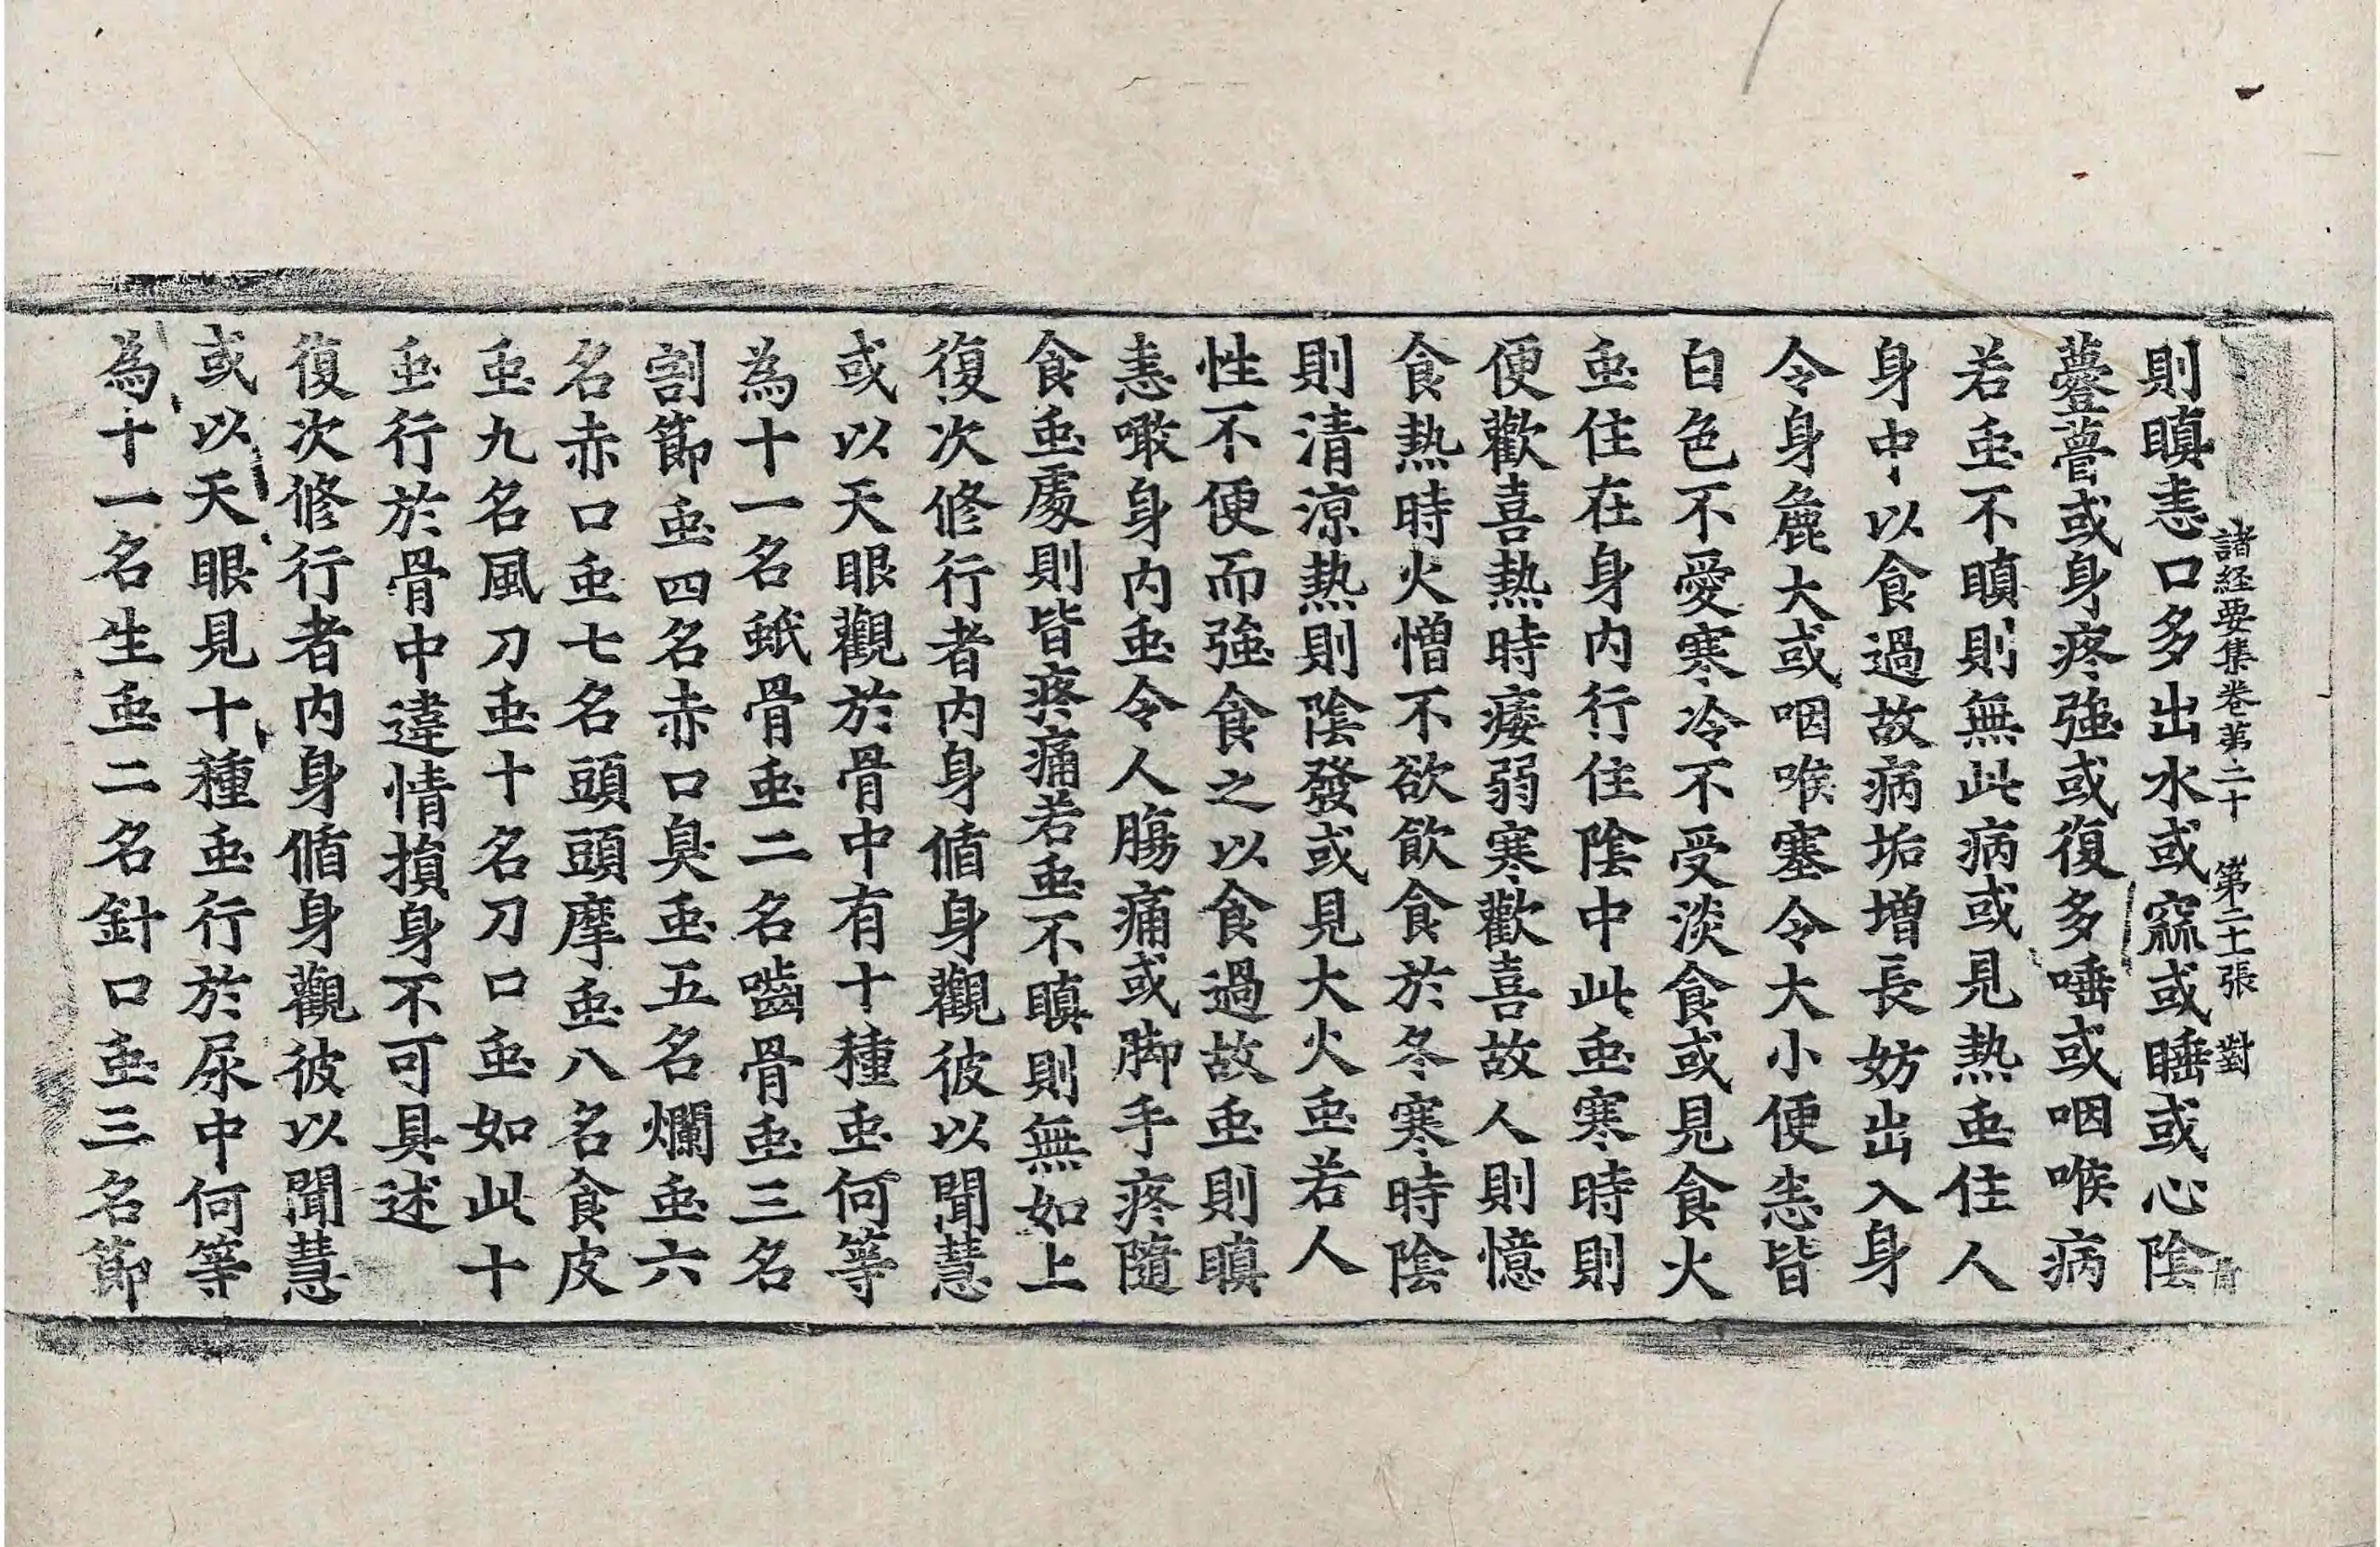 諸経要集卷苐二十　第二十一張　對
則瞋恚口多出水或窳或睡或心陰
薹薹或身疼強或復多唾或咽喉病
若䖝不瞋則無此病或見熱䖝住人
身中以食過故病垢增長妨出入身
令身麁大或咽喉塞令大小便恙皆
白色不愛寒冷不受淡食或見食火
䖝住在身內行住陰中此䖝寒時則
便歡喜熱時痿弱寒歡喜故人則憶
食熱時火憎不欲飲食於冬寒時陰
則清涼熱則陰發或見大火䖝若人
性不便而強食之以食過故䖝則瞋
恚噉身內䖝令人腸痛或脚手疼隨
食䖝處則皆疼痛若䖝不瞋則無如上
復次修行者內身循身觀彼以聞慧
或以天眼觀於骨中有十種䖝何等
為十一名蚔骨䖝二名嚙骨䖝三名
割節䖝四名赤口臭䖝五名爛䖝六
名赤口䖝七名頭頭摩䖝八名食皮
䖝九名風刀䖝十名刀口䖝如此十
䖝行於骨中違情損身不可具述
復次修行者內身循身觀彼以聞慧
或以天眼見十種䖝行於尿中何等
為十一名生䖝二名針口䖝三名節